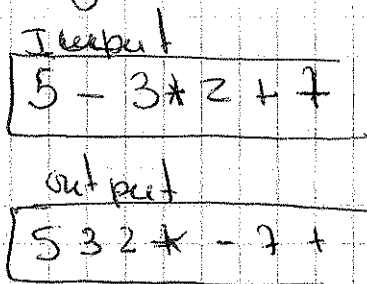 Input
5 - 3 * 2 + 7
output
5 3 2 * - 7 +